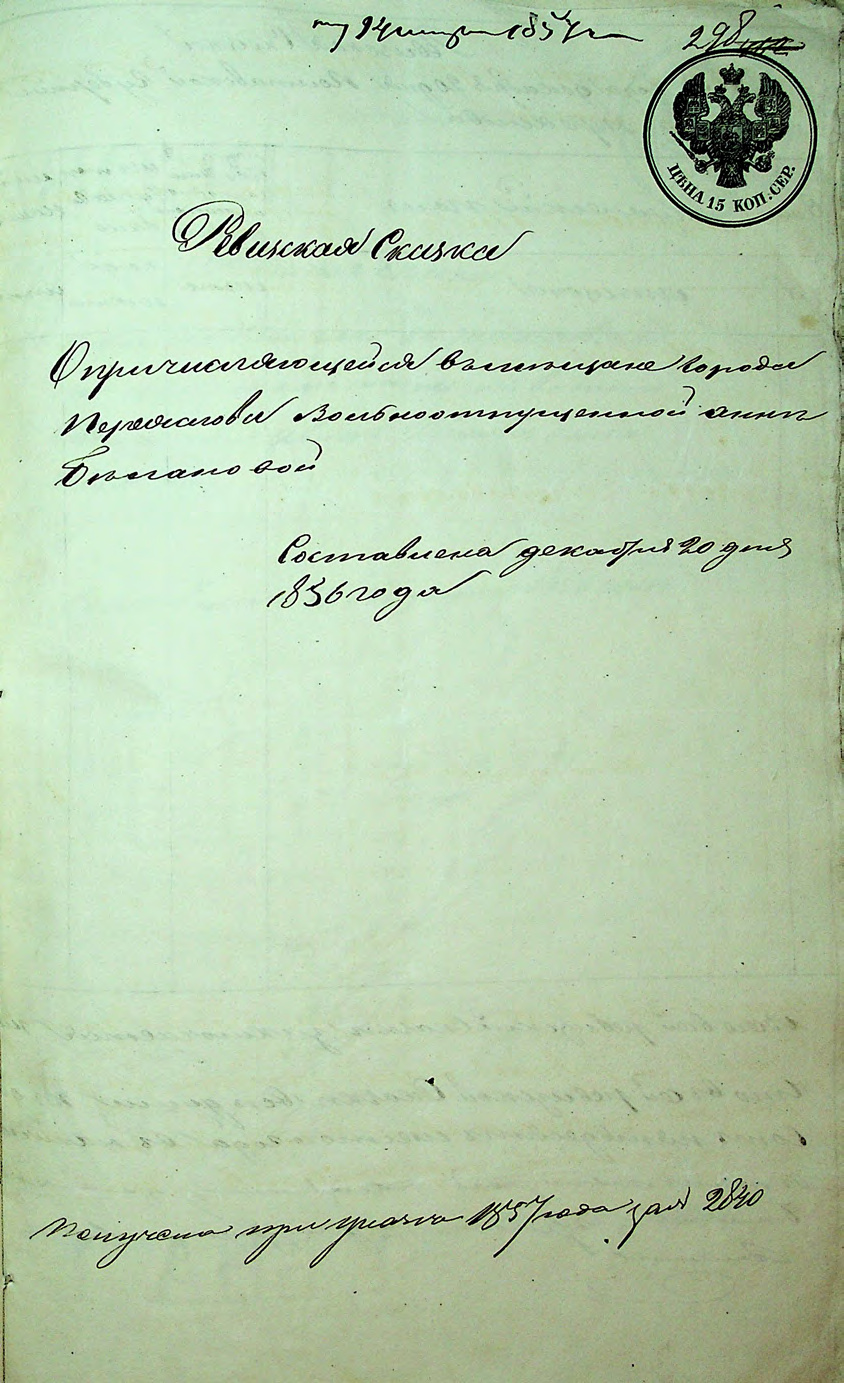 298
ЦѢНА 15 КОП. СЕР.
Ревизская Сказка
О причисляющейся въ мещане города
Переяслова Вольноотпущенной анны
составлена декабря 20 дня
1856 года
Получена при указе 1857 года за № 2840